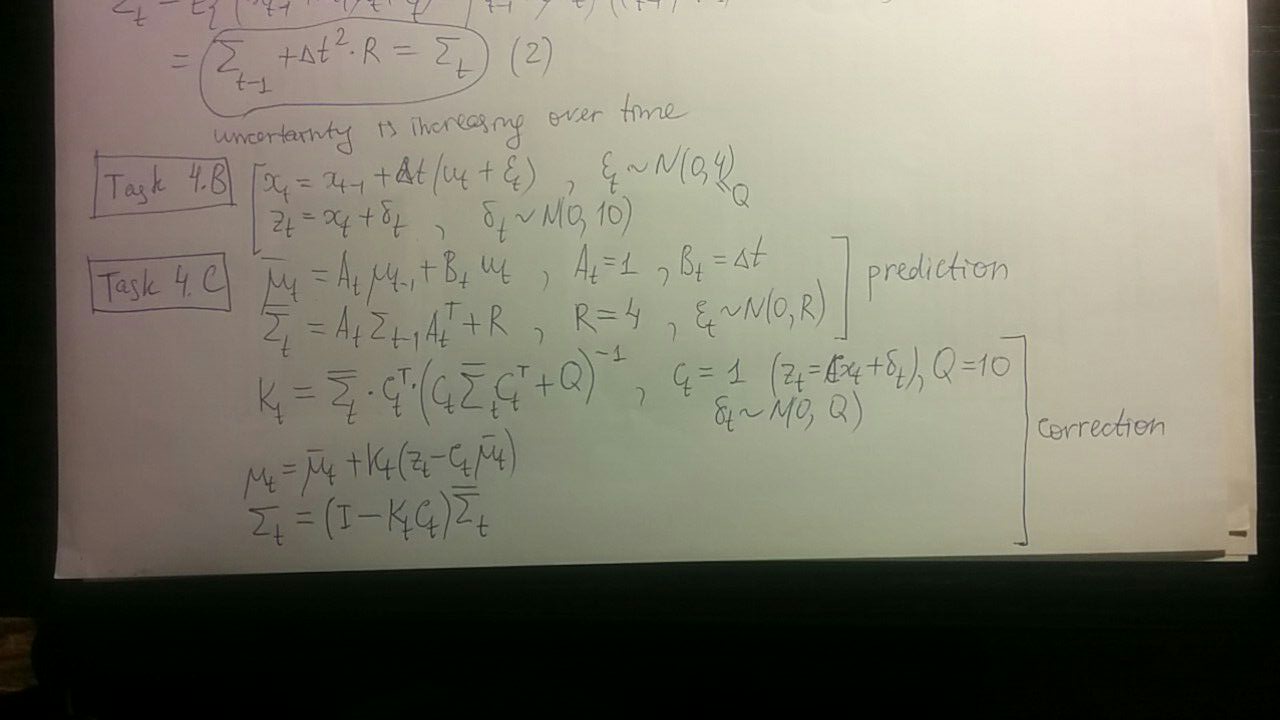 = Σ_{t-1} + Δt²·R = Σ_t (2)
uncertainty is increasing over time
Task 4.B
x_t = x_{t-1} + Δt(u_t + ξ_t) , ξ_t ~ N(0,4) Q
z_t = x_t + δ_t , δ_t ~ N(0,10)
Task 4.C
μ̄_t = A_t μ_{t-1} + B_t u_t , A_t = 1 , B_t = Δt
Σ̄_t = A_t Σ_{t-1} A_t^T + R , R = 4 , ξ_t ~ N(0,R)
prediction
K_t = Σ̄_t · C_t^T · (C_t Σ̄_t C_t^T + Q)^{-1} , C_t = 1 (z_t = Cx_t + δ_t), Q = 10
δ_t ~ N(0, Q)
μ_t = μ̄_t + K_t(z_t - C_t μ̄_t)
Σ_t = (I - K_t C_t) Σ̄_t
correction